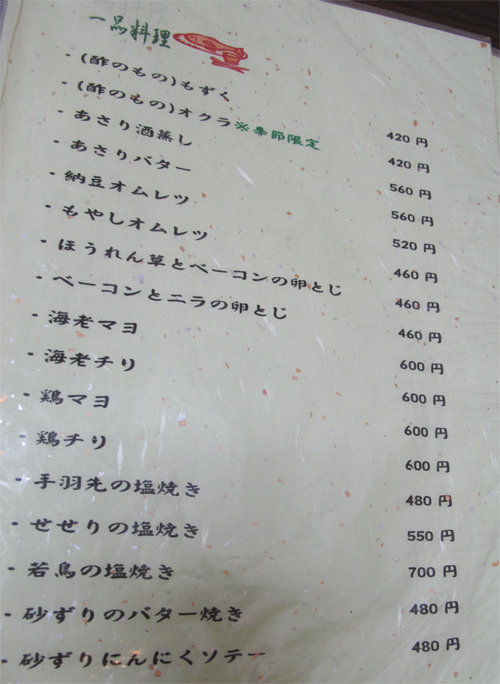 一品料理
・(酢のもの)もずく 420 円
・(酢のもの)オクラ※季節限定 420 円
・あさり酒蒸し 560 円
・あさりバター 560 円
・納豆オムレツ 520 円
・もやしオムレツ 460 円
・ほうれん草とベーコンの卵とじ 460 円
・ベーコンとニラの卵とじ 460 円
・海老マヨ 600 円
・海老チリ 600 円
・鶏マヨ 600 円
・鶏チリ 600 円
・手羽先の塩焼き 480 円
・せせりの塩焼き 550 円
・若鳥の塩焼き 700 円
・砂ずりのバター焼き 480 円
・砂ずりにんにくソテー 480 円